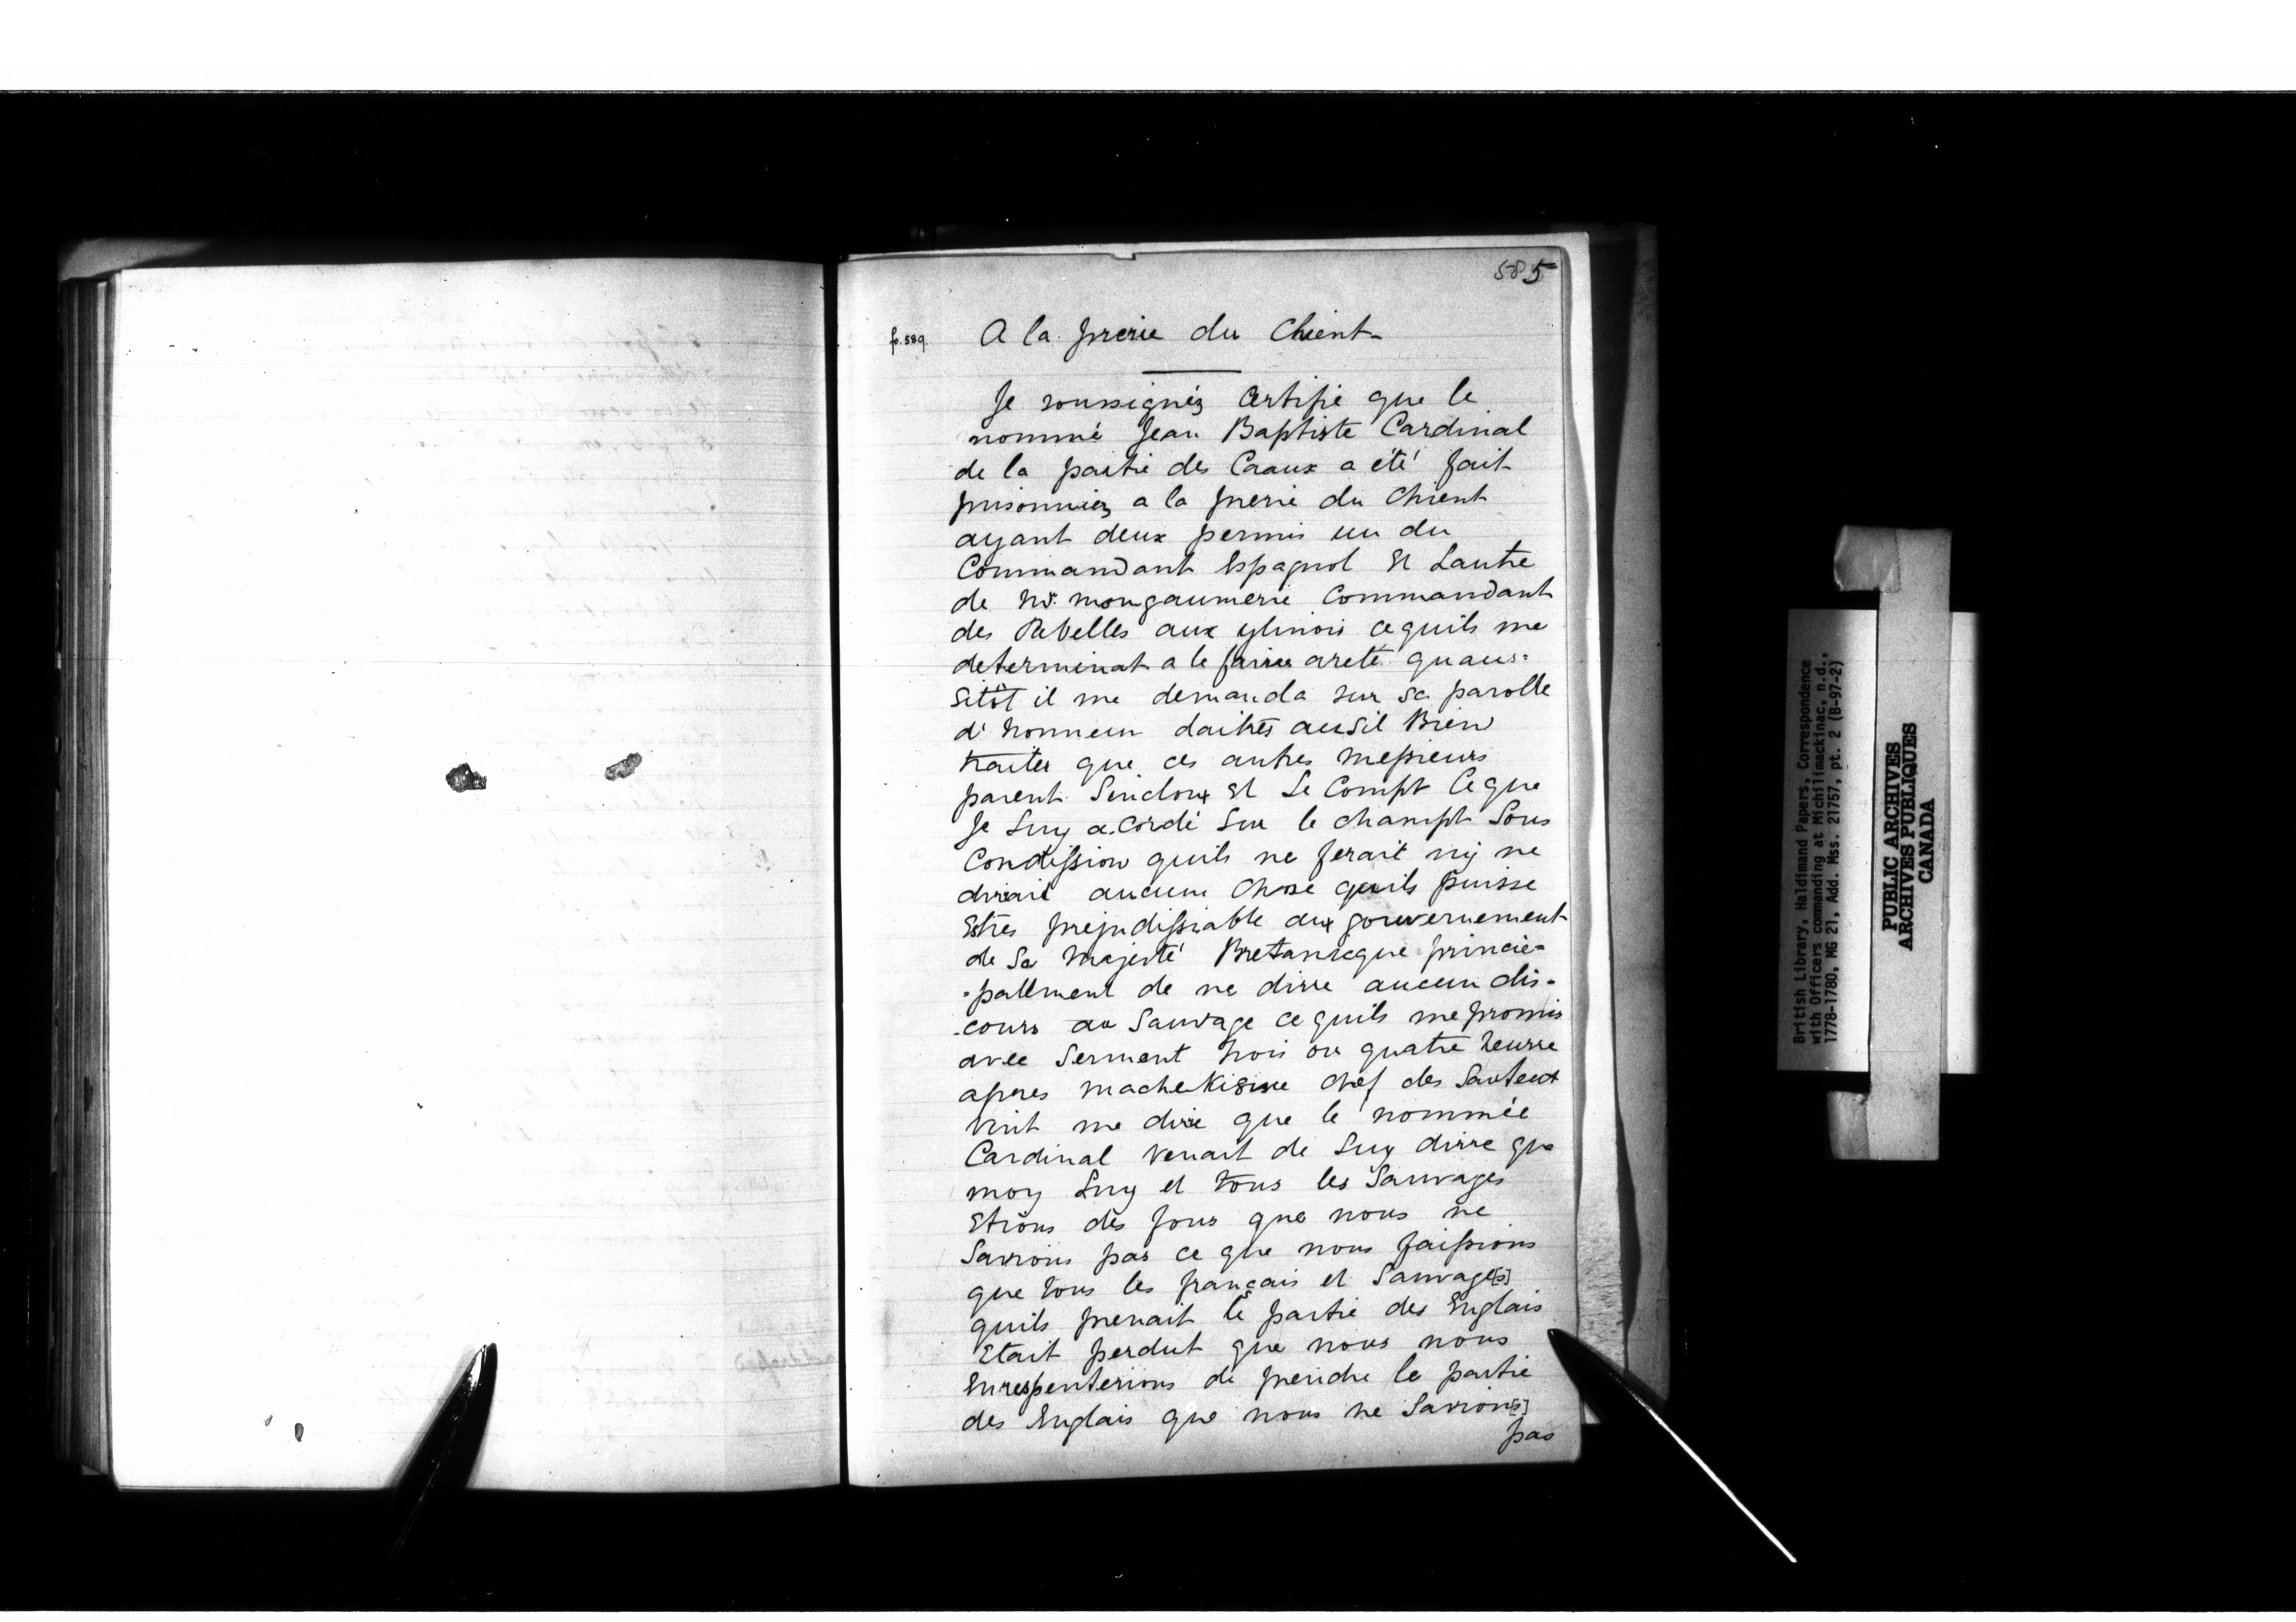 585
f. 589.
A la prerie du Chient
Je soussignéz Certifie que le
nommé Jean Baptiste Cardinal
de la partie des Caaux a été fait
prisonniez a la prerie du Chient
ayant deux permis un du
Commandant Espagnol Et Lautre
de Mr. mongaumerie Commandant
des Rebelles aux ylinois ce quils me
determinat a le faire areté quaus=
Sitôt il me demanda sur sa parolle
d'honneur daitres ausil Bien
traiter que ces autres messieurs
parent Sincloux Et Le Compt Ce que
Je Luy a.Cordé Sur le champt Sous
Condission quils ne ferait ny ne
dirait aucune Chose quils puisse
Estres prejudissiable aux gouvernement
de Sa Majesté Bretanicque princie=
=pallment de ne dirre aucun dis-
-cours au Sauvage ce quils me promis
avec Serment trois ou quatre heurre
apres machekisive Chef des Sauteux
vint me dire que le nommée
Cardinal venait de Luy dirre que
moy Luy et tous les Sauvages
Etions des fous que nous ne
Savions pas ce que nous faissions
que tous les français et Sauvage[s]
quils prenait le partie des Englais
Etait perdut que nous nous
Enrespenterions de prendre le partie
des Englais que nous ne Savion[s]
pas
British Library, Haldimand Papers, Correspondence
with Officers commanding at Michilimackinac, n.d.,
1778-1780, MG 21, Add. Mss. 21757, pt. 2 (B-97-2)
PUBLIC ARCHIVES
ARCHIVES PUBLIQUES
CANADA